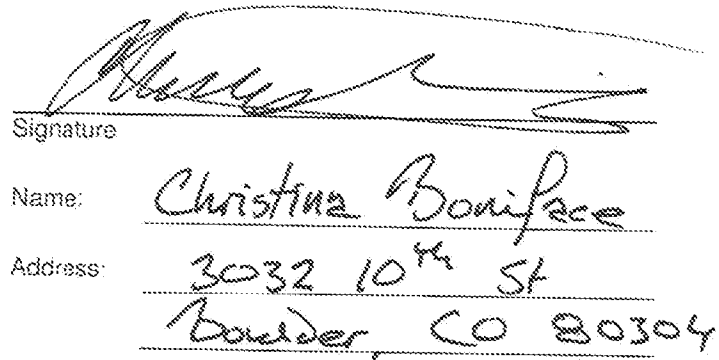 Signature
Name: Christina Boniface
Address: 3032 10th St
Boulder, CO 80304